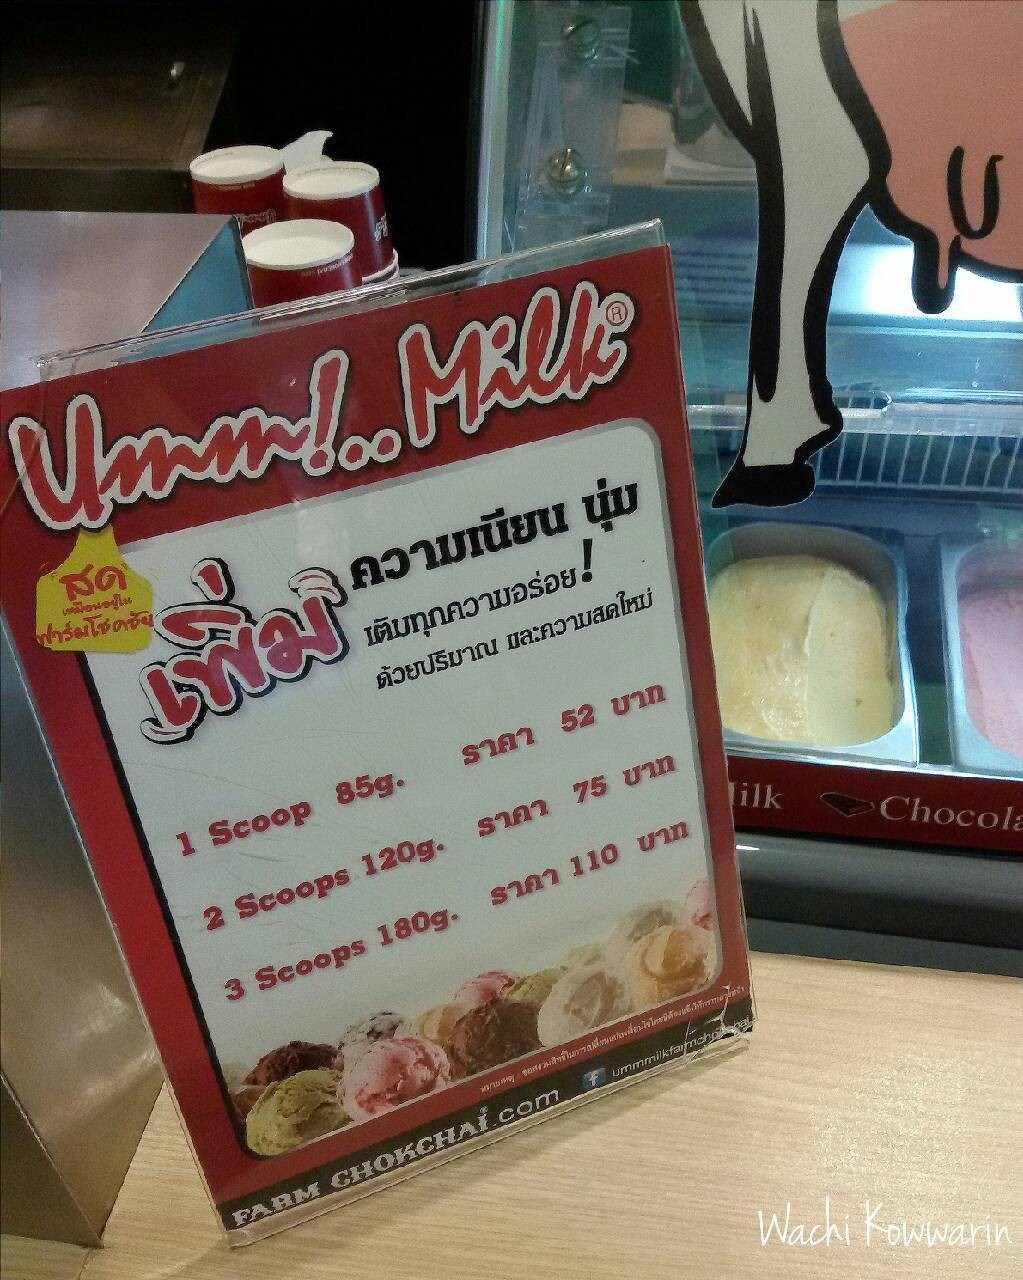 Umm!..Milk®
สด
เหมือนอยู่ใน
ฟาร์มโชคชัย
เพิ่ม ความเนียน นุ่ม
เติมทุกความอร่อย!
ด้วยปริมาณ และความสดใหม่
1 Scoop 85g. ราคา 52 บาท
2 Scoops 120g. ราคา 75 บาท
3 Scoops 180g. ราคา 110 บาท
FARM CHOKCHAI.com
ummmilkfarmchokchai
Chocola
Wachi Kowwarin